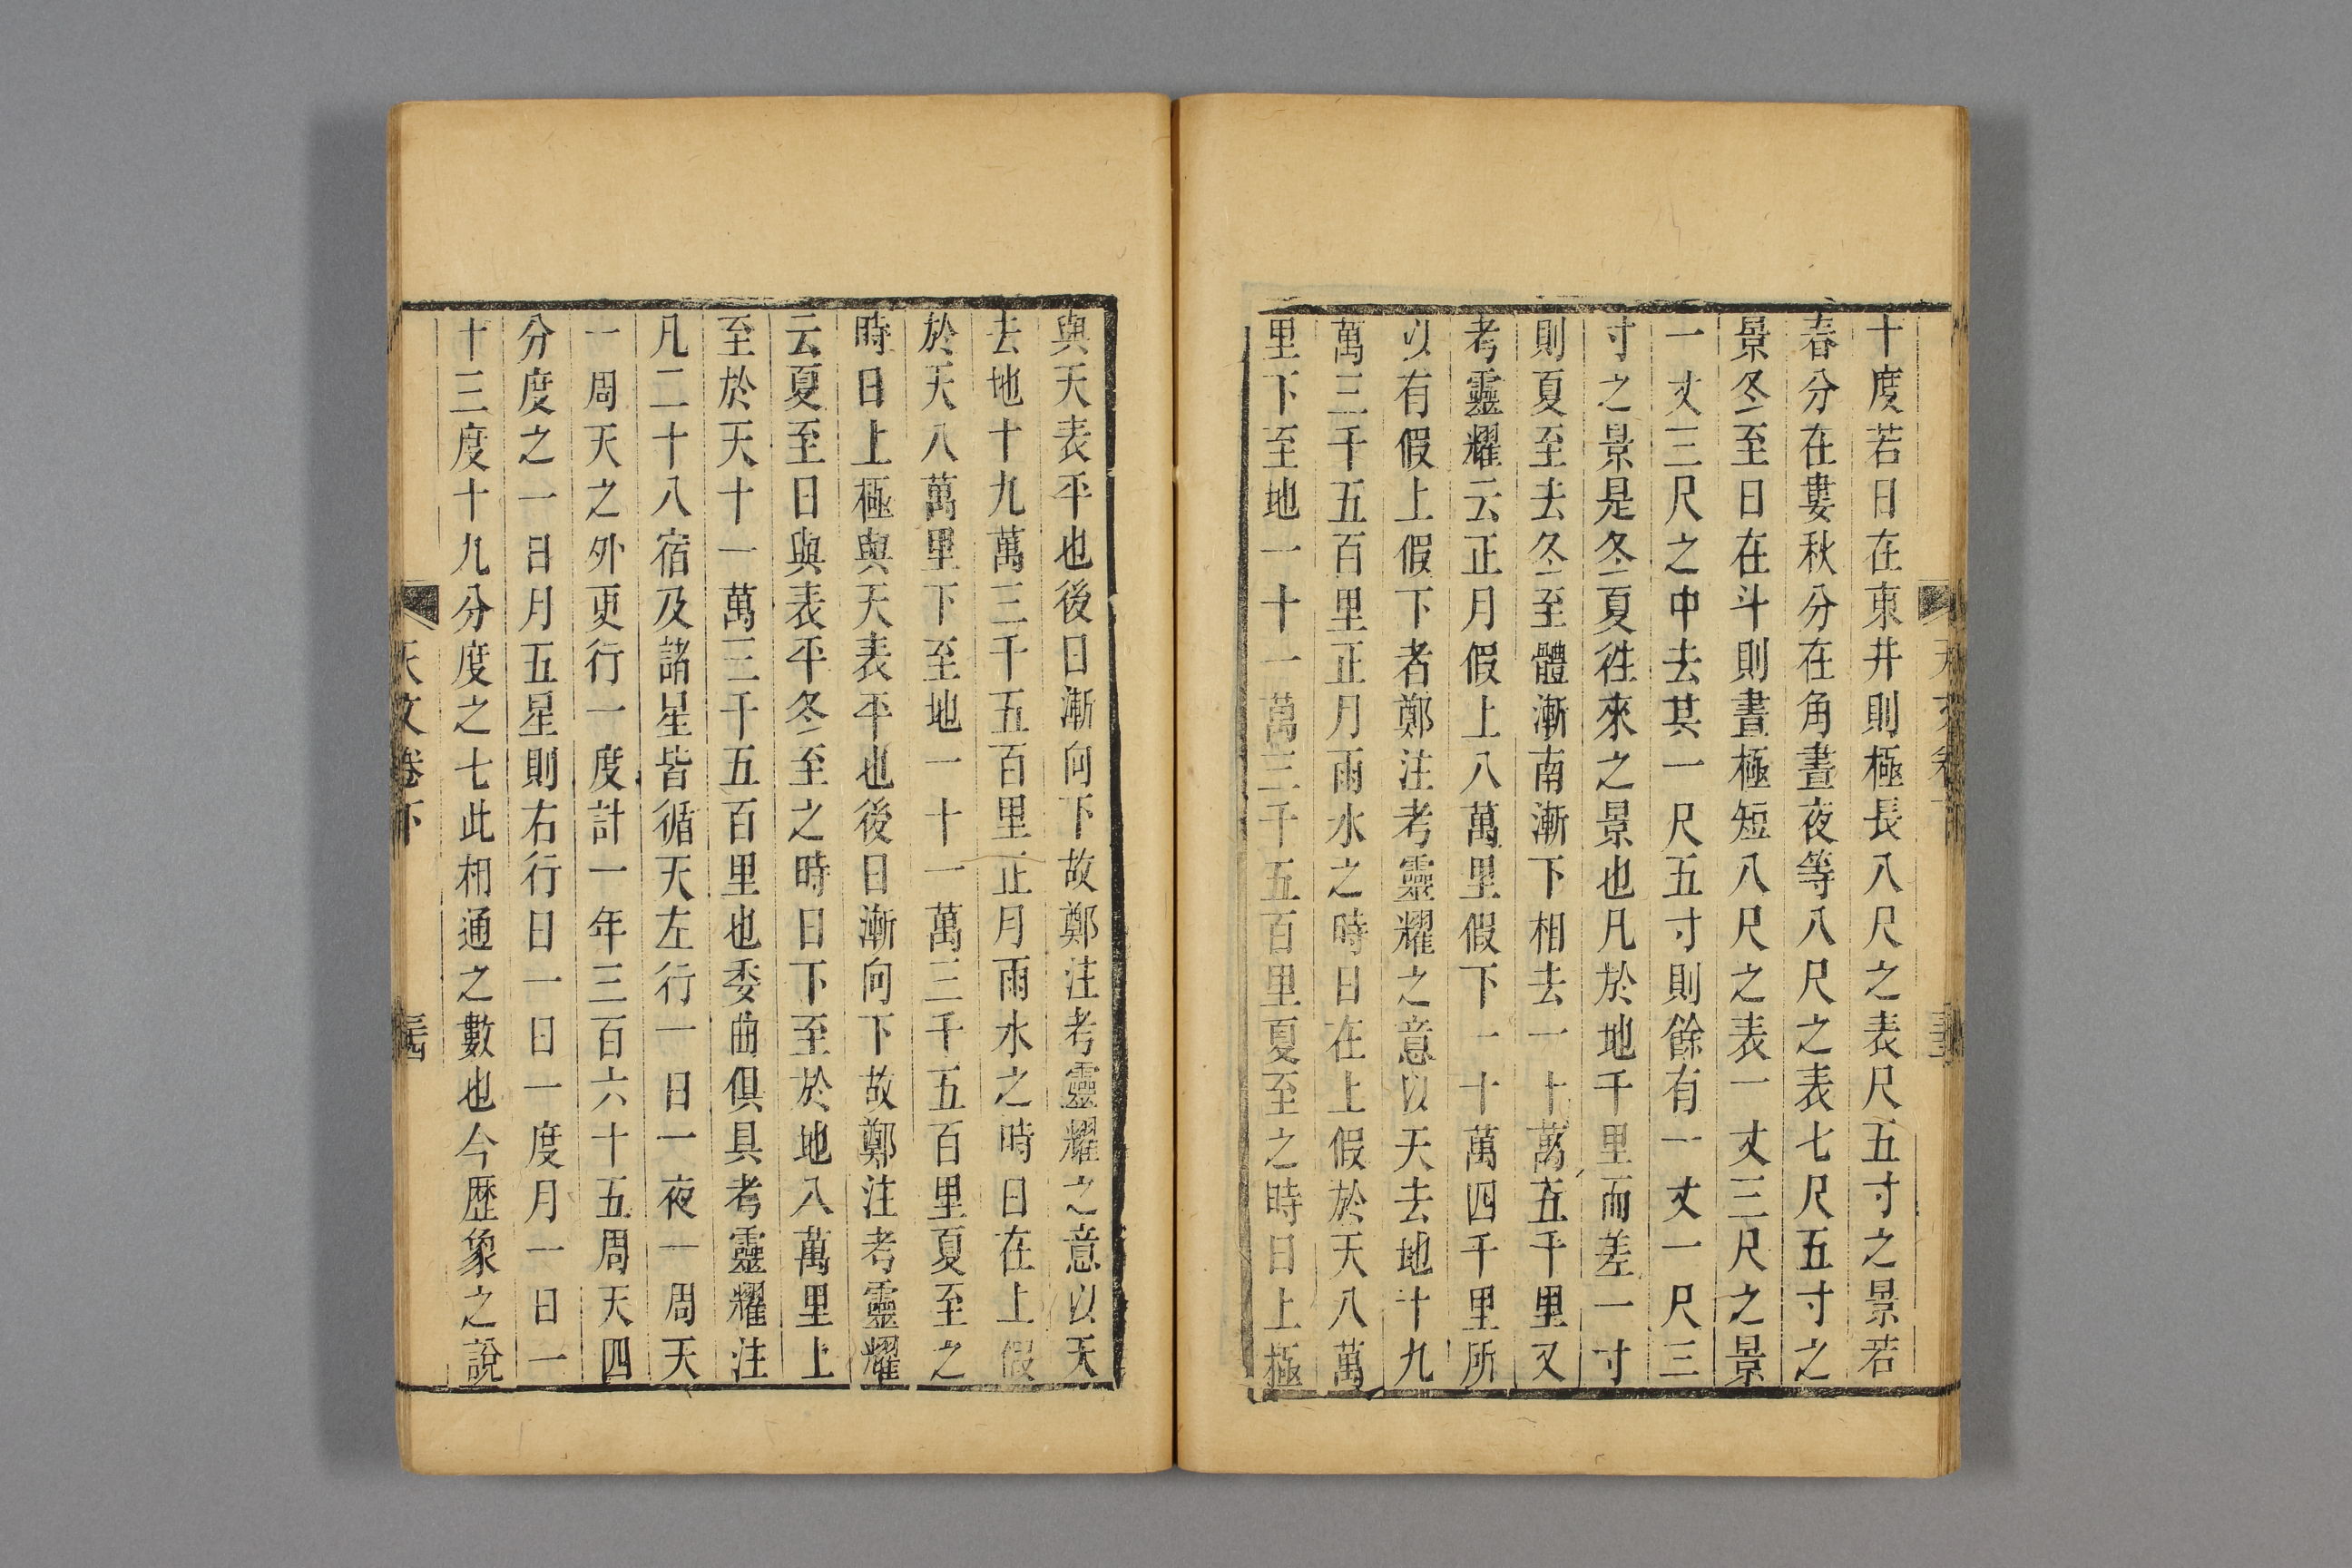 十度若日在東井則極長八尺之表尺五寸之景若
春分在婁秋分在角晝夜等八尺之表七尺五寸之
景冬至日在斗則晝極短八尺之表一丈三尺之景
一丈三尺之中去其一尺五寸則餘有一丈一尺三
寸之景是冬夏徃來之景也凡於地千里而差一寸
則夏至去冬至體漸南漸下相去一十萬五千里又
考靈耀云正月假上八萬里假下一十萬四千里所
以有假上假下者鄭注考靈耀之意以天去地十九
萬三千五百里正月雨水之時日在上假於天八萬
里下至地一十一萬三千五百里夏至之時日上極
與天表平也後日漸向下故鄭注考靈耀之意以天
去地十九萬三千五百里正月雨水之時日在上假
於天八萬里下至地一十一萬三千五百里夏至之
時日上極與天表平也後日漸向下故鄭注考靈耀
云夏至日與表平冬至之時日下至於地八萬里上
至於天十一萬三千五百里也委曲俱具考靈耀注
凡二十八宿及諸星皆循天左行一日一夜一周天
一周天之外更行一度計一年三百六十五周天四
分度之一日月五星則右行日一日一度月一日一
十三度十九分度之七此相通之數也今歷象之說
天文卷下